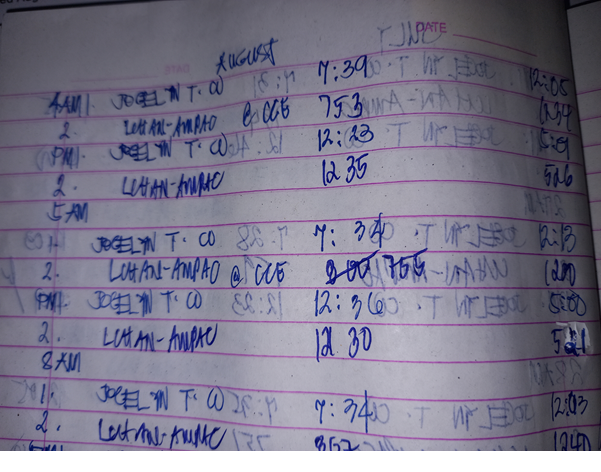 DATE
AUGUST
4 AM 1. JOCELYN T. CO 7:39 12:05
2. LCHAN-AMPAO @ CCE 753
PM 1. JOCELYN T. CO 12:23 5:01
2. LCHAN-AMPAO 12 35 526
5 AM
JOCELYN T. CO 7:34 12:13
2. LCHAN-AMPAO @ CCE 755 1200
PM 1. JOCELYN T. CO 12:36 5:00
2. LCHAN-AMPAO 12 30 521
8 AM
1. JOCELYN T. CO 7:34 12:03
2. LCHAN-AMPAO 857 1240